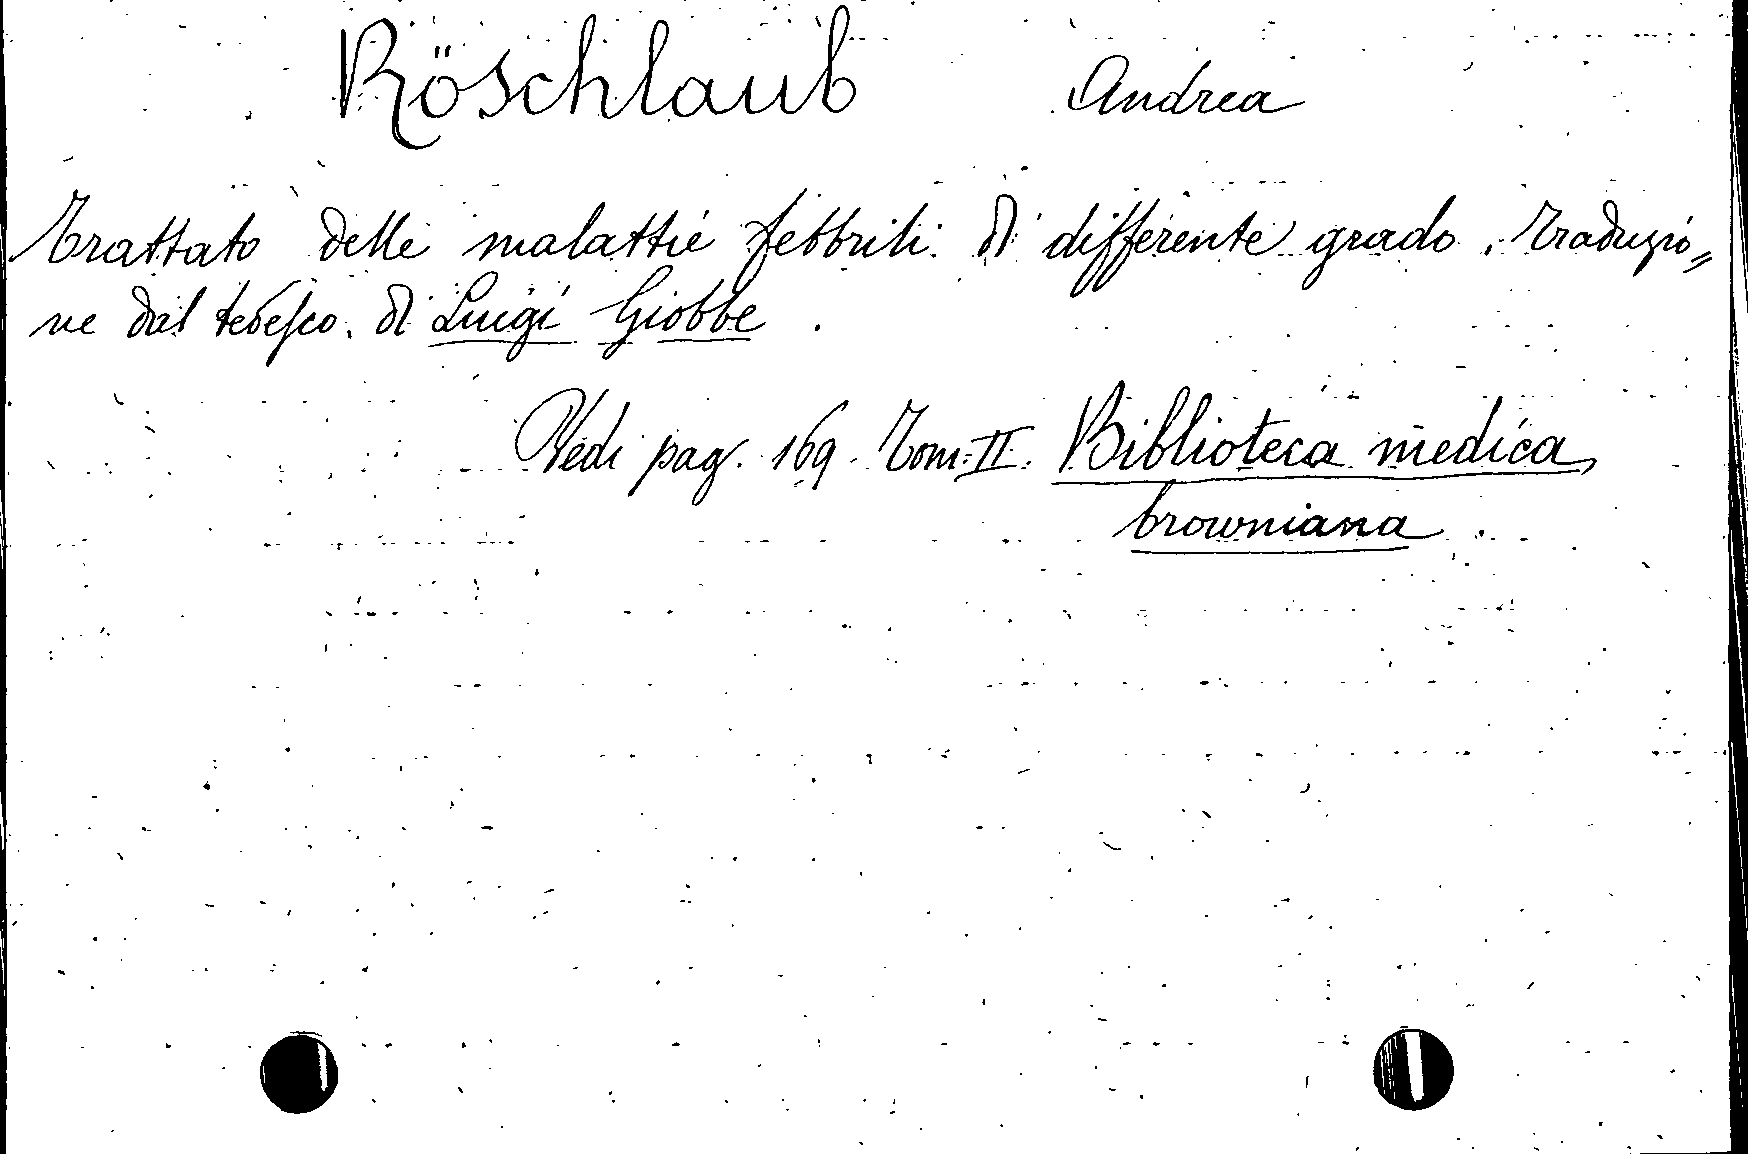 Röschlaub Andrea
Trattato delle malattie febbrili di differente grado. Traduzio=
ne dal tedesco di Luigi Giobbe.
Vedi pag. 169. Tom. II. Biblioteca medica
browniana.